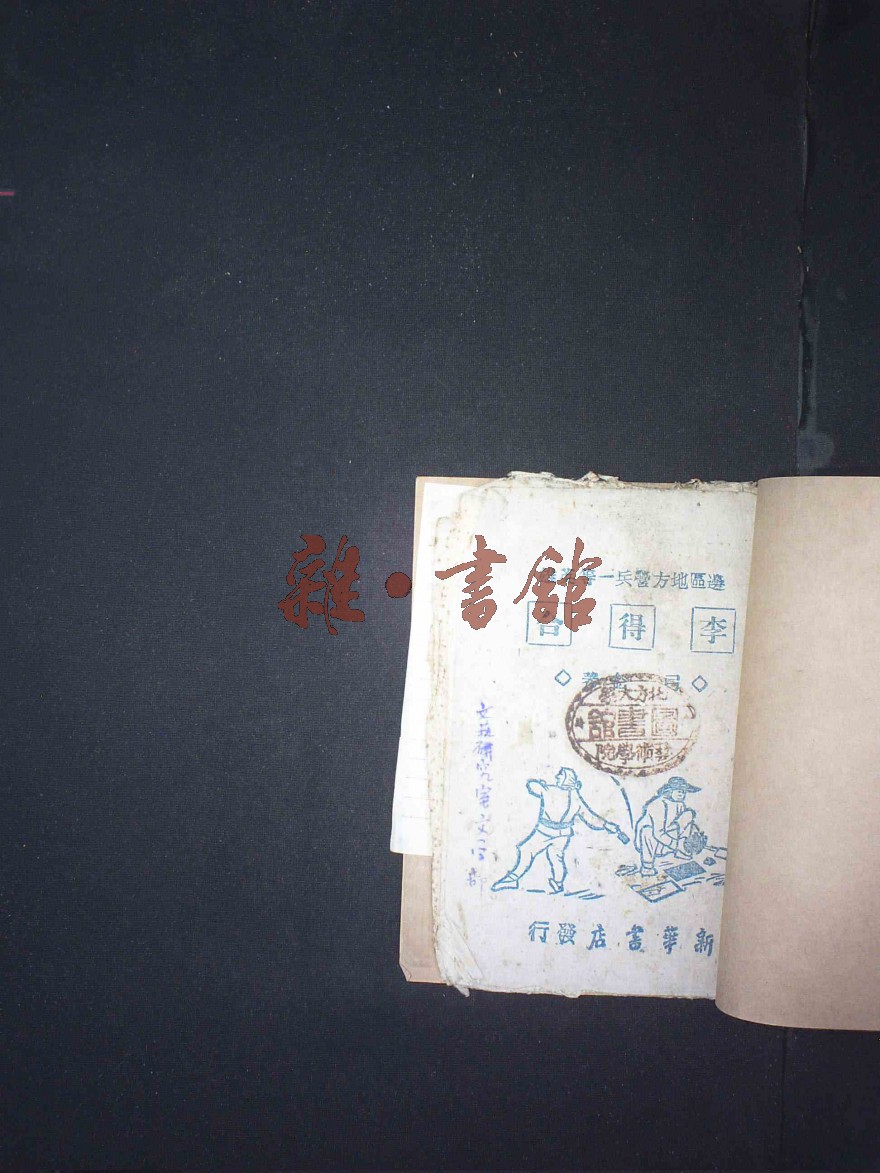 雜·書館
邊區地方警兵一等
李得合
北方大學
圖書館
藝術學院
文藝研究室
新華書店發行